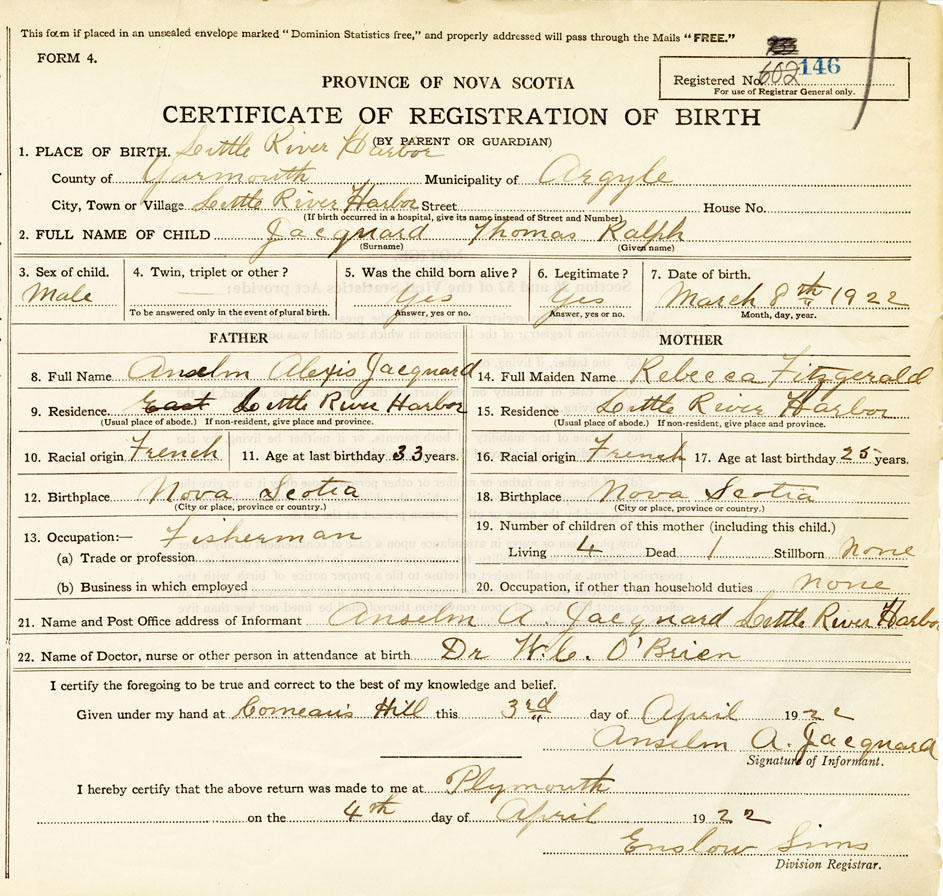 This form if placed in an unsealed envelope marked "Dominion Statistics free," and properly addressed will pass through the Mails "FREE."
FORM 4.
Registered No. 602 146
For use of Registrar General only.
PROVINCE OF NOVA SCOTIA
CERTIFICATE OF REGISTRATION OF BIRTH
(BY PARENT OR GUARDIAN)
1. PLACE OF BIRTH. Little River Harbor
County of Yarmouth Municipality of Argyle
City, Town or Village Little River Harbor Street House No.
(If birth occurred in a hospital, give its name instead of Street and Number)
2. FULL NAME OF CHILD Jacquard Thomas Ralph
(Surname) (Given name)
3. Sex of child. 4. Twin, triplet or other? 5. Was the child born alive? 6. Legitimate? 7. Date of birth.
Male — Yes Yes March 8th 1922
To be answered only in the event of plural birth. Answer, yes or no. Answer, yes or no. Month, day, year.
FATHER MOTHER
8. Full Name Anselm Alexis Jacquard 14. Full Maiden Name Rebecca Fitzgerald
9. Residence. East Little River Harbor 15. Residence Little River Harbor
(Usual place of abode.) If non-resident, give place and province. (Usual place of abode.) If non-resident, give place and province.
10. Racial origin French 11. Age at last birthday 33 years. 16. Racial origin French 17. Age at last birthday 25 years.
12. Birthplace Nova Scotia 18. Birthplace Nova Scotia
(City or place, province or country.) (City or place, province or country.)
13. Occupation:— Fisherman 19. Number of children of this mother (including this child.)
(a) Trade or profession Living 4 Dead 1 Stillborn None
(b) Business in which employed 20. Occupation, if other than household duties None
21. Name and Post Office address of Informant Anselm A. Jacquard Little River Harbor
22. Name of Doctor, nurse or other person in attendance at birth Dr W.C. O'Brien
I certify the foregoing to be true and correct to the best of my knowledge and belief.
Given under my hand at Comeau's Hill this 3rd day of April 1922
Anselm A. Jacquard
Signature of Informant.
I hereby certify that the above return was made to me at Plymouth
on the 4th day of April 1922
Enslow Sims
Division Registrar.